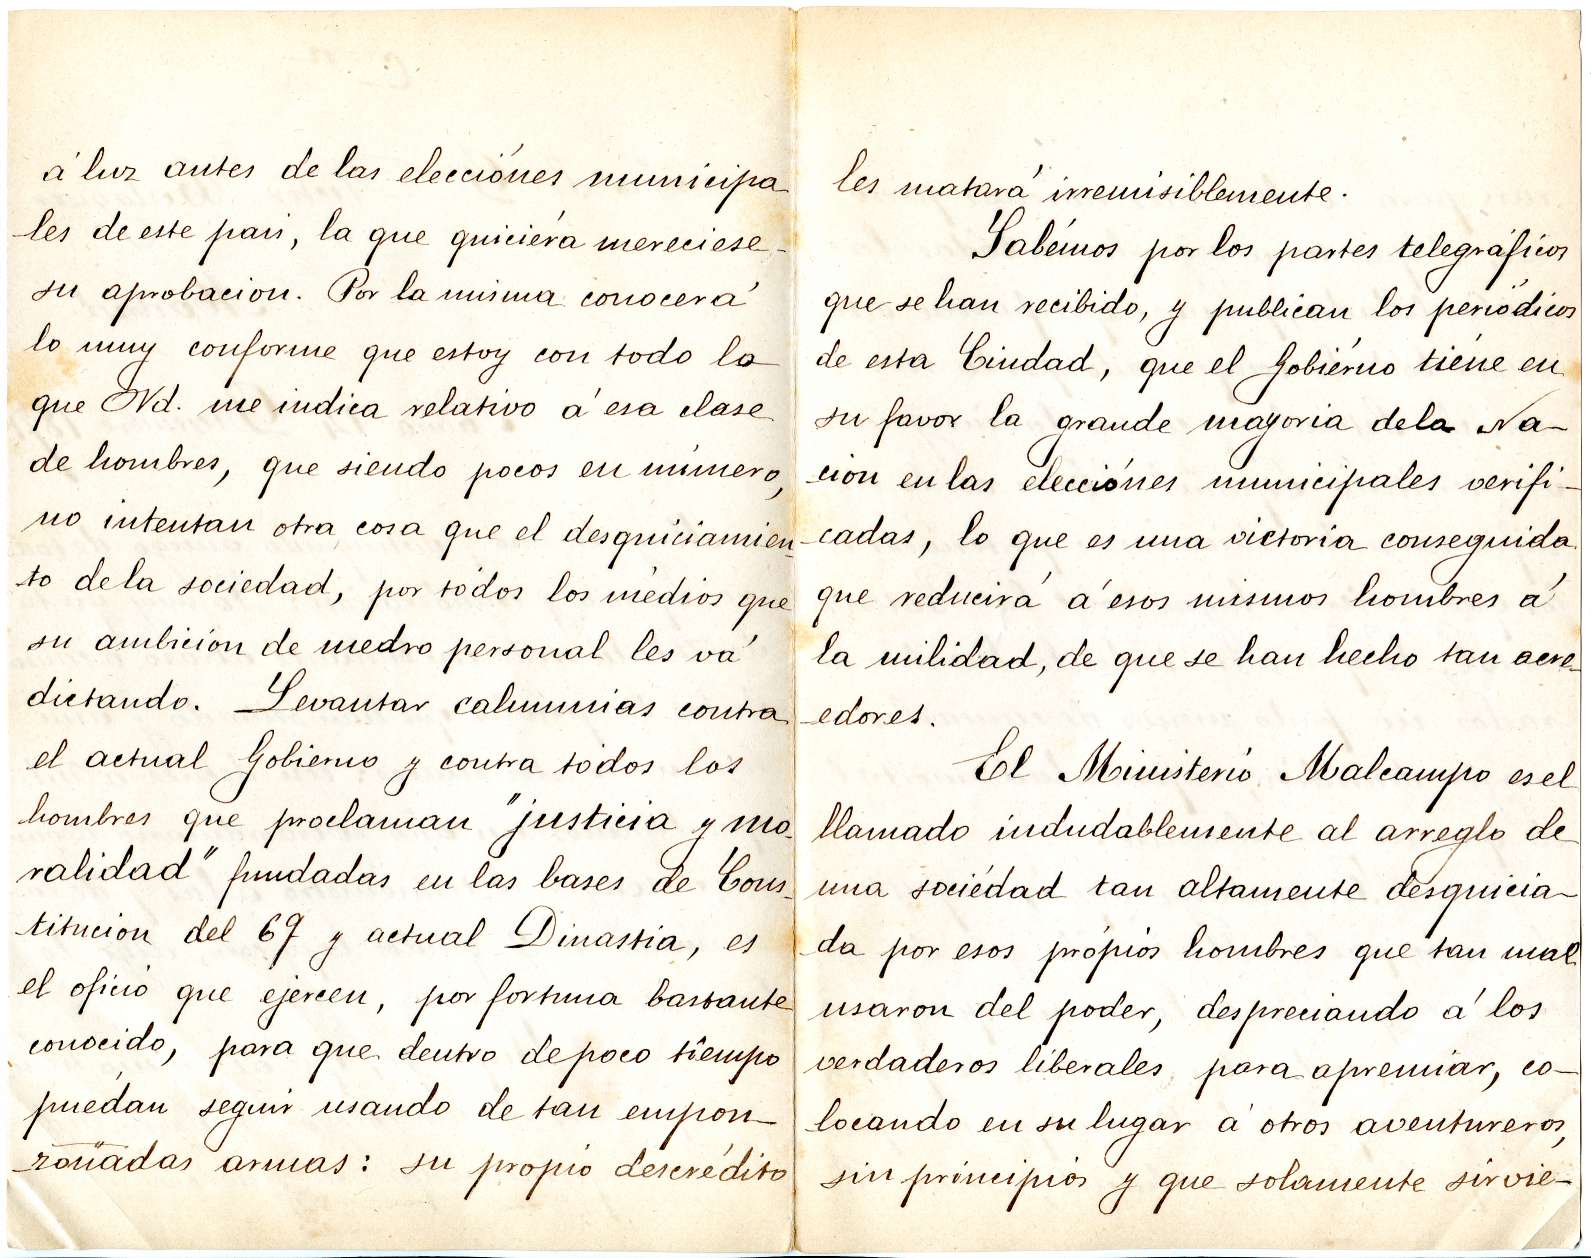 á luz antes de las elecciónes municipa
les de este pais, la que quiciéra mereciese
su aprobacion. Por la misma conocerá
lo muy conforme que estoy con todo lo
que Vd. me indica relativo á esa clase
de hombres, que siendo pocos en número,
no intentan otra cosa que el desquiciamien
to de la sociedad, por todos los médios que
su ambición de medro personal les vá
dictando. Levantar calumnias contra
el actual Gobierno y contra todos los
hombres que proclaman "justicia y mo
ralidad" fundadas en las bases de Cons
titucion del 69 y actual Dinastia, es
el oficio que ejercen, por fortuna bastante
conocido, para que dentro de poco tiempo
puédan seguir usando de tan empon
zoñadas armas: su propio descrédito
les matará irremisiblemente.
Sabémos por los partes telegráficos
que se han recibido, y publican los periódicos
de esta Ciudad, que el Gobiérno tiéne en
su favor la grande mayoria de la Na-
ción en las elecciónes municipales verifi-
cadas, lo que es una victoria conseguida
que reducirá á esos mismos hombres á
la nulidad, de que se han hecho tan acre
edores.
El Ministerio Malcampo es el
llamado indudablemente al arreglo de
una sociédad tan altamente desquicia-
da por esos própios hombres que tan mal
usaron del poder, despreciando á los
verdaderos liberales para apremiar, co-
locando en su lugar á otros aventureros,
sin principios y que solamente sirvie-